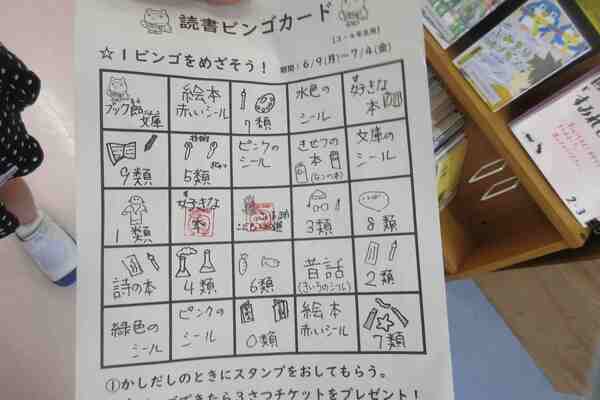 読書ビンゴカード
☆1ビンゴをめざそう！
期間：6/9(月)～7/4(金)
ブック館文庫
絵本赤いシール
7類
水色のシール
好きな本
9類
5類
ピンクのシール
きせつの本(なつの本)
文庫のシール
1類
好きな本
3類
8類
詩の本
4類
6類
昔話(きいろのシール)
2類
緑色のシール
ピンクのシール
0類
絵本赤いシール
7類
①かしだしのときにスタンプをおしてもらう。
できたら3さつチケットをプレゼント！